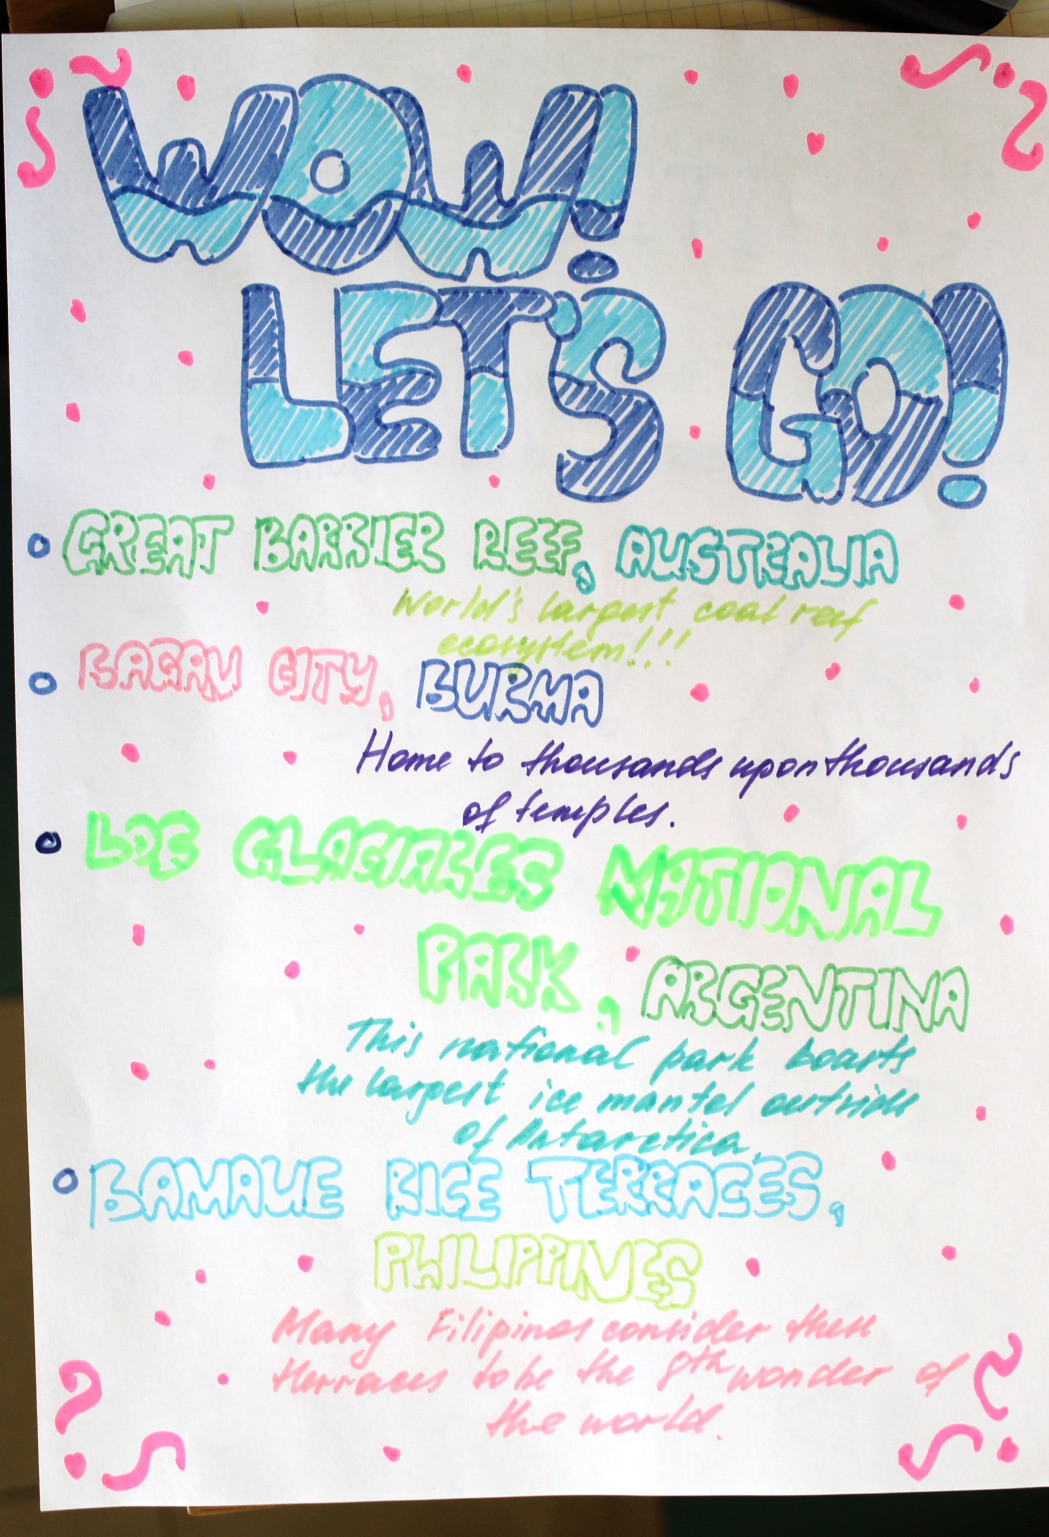 WOW!
LET'S GO!
GREAT BARRIER REEF, AUSTRALIA
World's largest coal reef
ecosystem!!!
BAGAN CITY, BURMA
Home to thousands upon thousands
of temples.
LOS GLACIARES NATIONAL
PARK, ARGENTINA
This national park boasts
the largest ice mantel outside
of Antarctica.
BAMAUE RICE TERRACES,
PHILIPPINES
Many Filipinos consider these
terraces to be the 8th wonder of
the world.